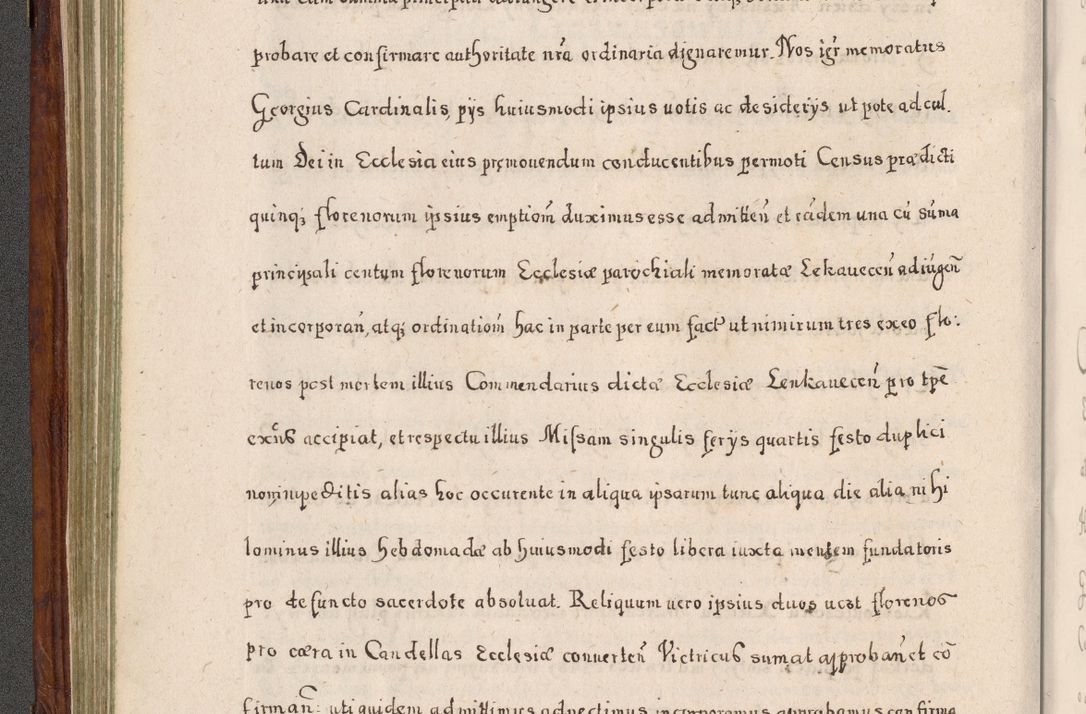 una cum summa principali adiungere et incorporare
probare et confirmare authoritate nrã ordinaria dignaremur. Nos igr̃ memoratus
Georgius Cardinalis, pÿs huiusmodi ipsius uotis ac desiderÿs ut pote ad cul
tum Dei in Ecclesia eius pręmouendum conducentibus permoti Census prædicti
quinq; florenorum ipsius emptiom̃ duximus esse admitteñ et eãdem una cũ sũma
principali centum florenorum Ecclesiæ parochiali memoratæ Lekaueceñ adiũgeñ
et incorporañ, atq; ordinatiom̃ hac in parte per eum fact' ut nimirum tres ex eo flo:
renos post mortem illius Commendarius dictæ Ecclesiæ Lenkaueceñ pro tp̃e
exñs accipiat, et respectu illius Missam singulis ferÿs quartis festo duplici
non impeditis alias hoc occurente in aliqua ipsarum tunc aliqua die alia nihi
lominus illius hebdomadæ ab huiusmodi festo libera iuxta mentem fundatoris
pro defuncto sacerdote absoluat. Reliquum uero ipsius duos uest florenos
pro cæra in Candellas Ecclesiæ conuerteñ Victricus sumat approbañ et cõ
firmañ: uti quidem admittimus adnectimus incorporamus approbamus confirma